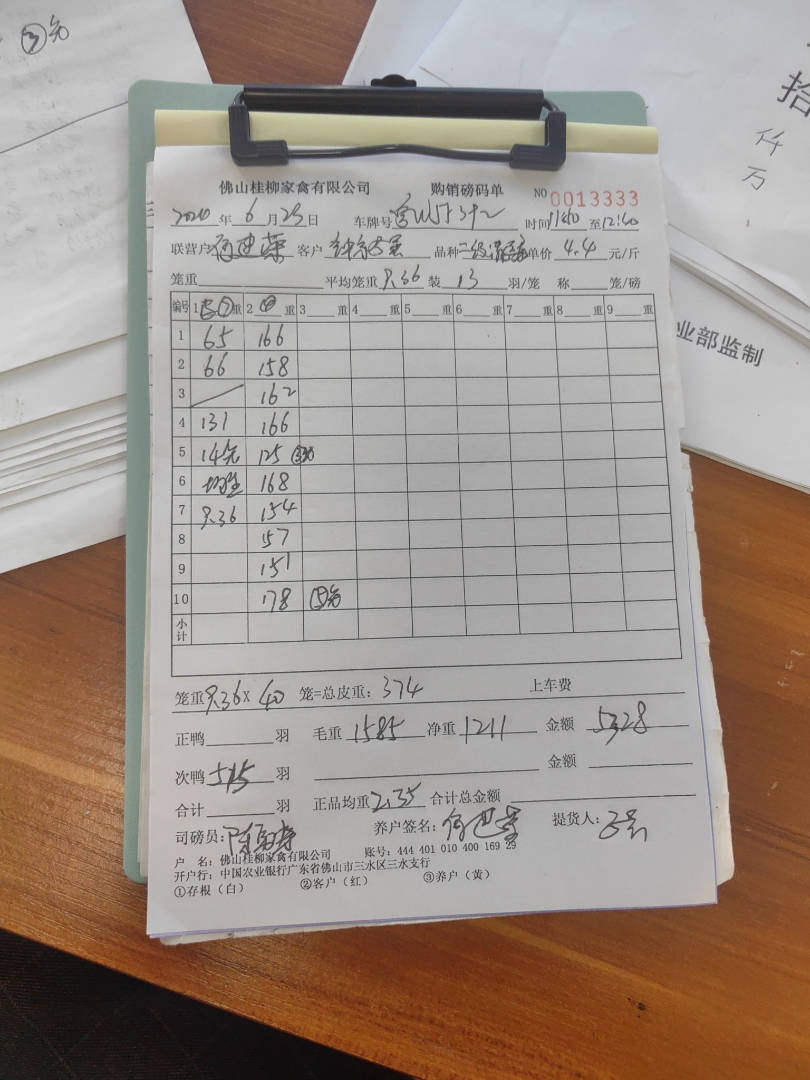 ③
拾
仟
万
业部监制
佛山桂柳家禽有限公司 购销磅码单 NO 0013333
2020 年 6 月 25 日 车牌号 时间 11:40 至 12:40
联营户 客户 品种 二级 单价 4.4 元/斤
笼重 平均笼重 9.36 装 13 羽/笼 称 笼/磅
编号 1 重 2 ④ 重 3 重 4 重 5 重 6 重 7 重 8 重 9 重
1 65 166
2 66 158
3 162
4 131 166
5 14 125
6 168
7 9.36 154
8 157
9 151
10 178
小计
笼重 9.36 X 40 笼=总皮重: 374 上车费
正鸭 羽 毛重 1585 净重 1211 金额 5328
次鸭 515 羽 金额
合计 羽 正品均重 2.35 合计总金额
司磅员: 养户签名: 提货人:
户 名: 佛山桂柳家禽有限公司 账号: 444 401 010 400 169 29
开户行: 中国农业银行广东省佛山市三水区三水支行
①存根(白) ②客户(红) ③养户(黄)